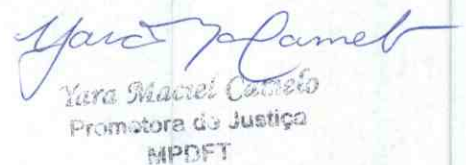 Yara M Camelo
Yara Maciel Camelo
Promotora de Justiça
MPDFT